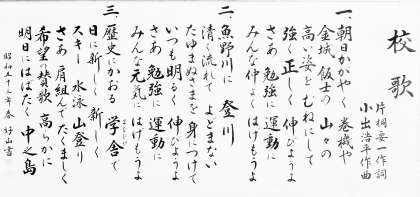 校歌
片桐要一作詞
小出浩平作曲
一、朝日かがやく 巻機や
金城 飯士の 山々の
高い姿を むねにして
強く 正しく 伸びようよ
さあ 勉強に 運動に
みんな 仲よく はげもうよ
二、魚野川に 登川
清く流れて よどまない
たゆまぬ力を 身につけて
いつも 明るく 伸びようよ
さあ 勉強に 運動に
みんな 元気に はげもうよ
三、歴史にかおる 学び舎で
日に新しく 新しく
スキー 水泳 山登り
さあ 肩組んで たくましく
希望の賛歌 高らかに
明日にはばたく 中之島
昭和五十八年 春